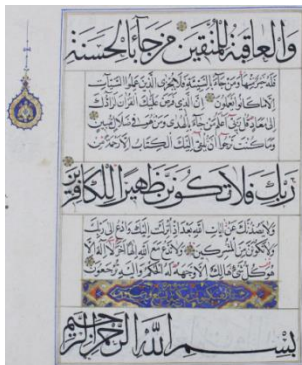 والعاقبة للمتقين من جاء بالحسنة
فله خير منها ومن جاء بالسيئة فلا يجزى الذين عملوا السيئات
الا ما كانوا يعملون ان الذى فرض عليك القران لرادك
الى معاد قل ربى اعلم من جاء بالهدى ومن هو فى ضلال مبين
وما كنت ترجوا ان يلقى اليك الكتاب الا رحمة من
ربك فلا تكونن ظهيرا للكافرين
ولا يصدنك عن ايات الله بعد اذ انزلت اليك وادع الى ربك
ولا تكونن من المشركين ولا تدع مع الله الها اخر لا اله الا
هو كل شىء هالك الا وجهه له الحكم واليه ترجعون
بسم الله الرحمن الرحيم